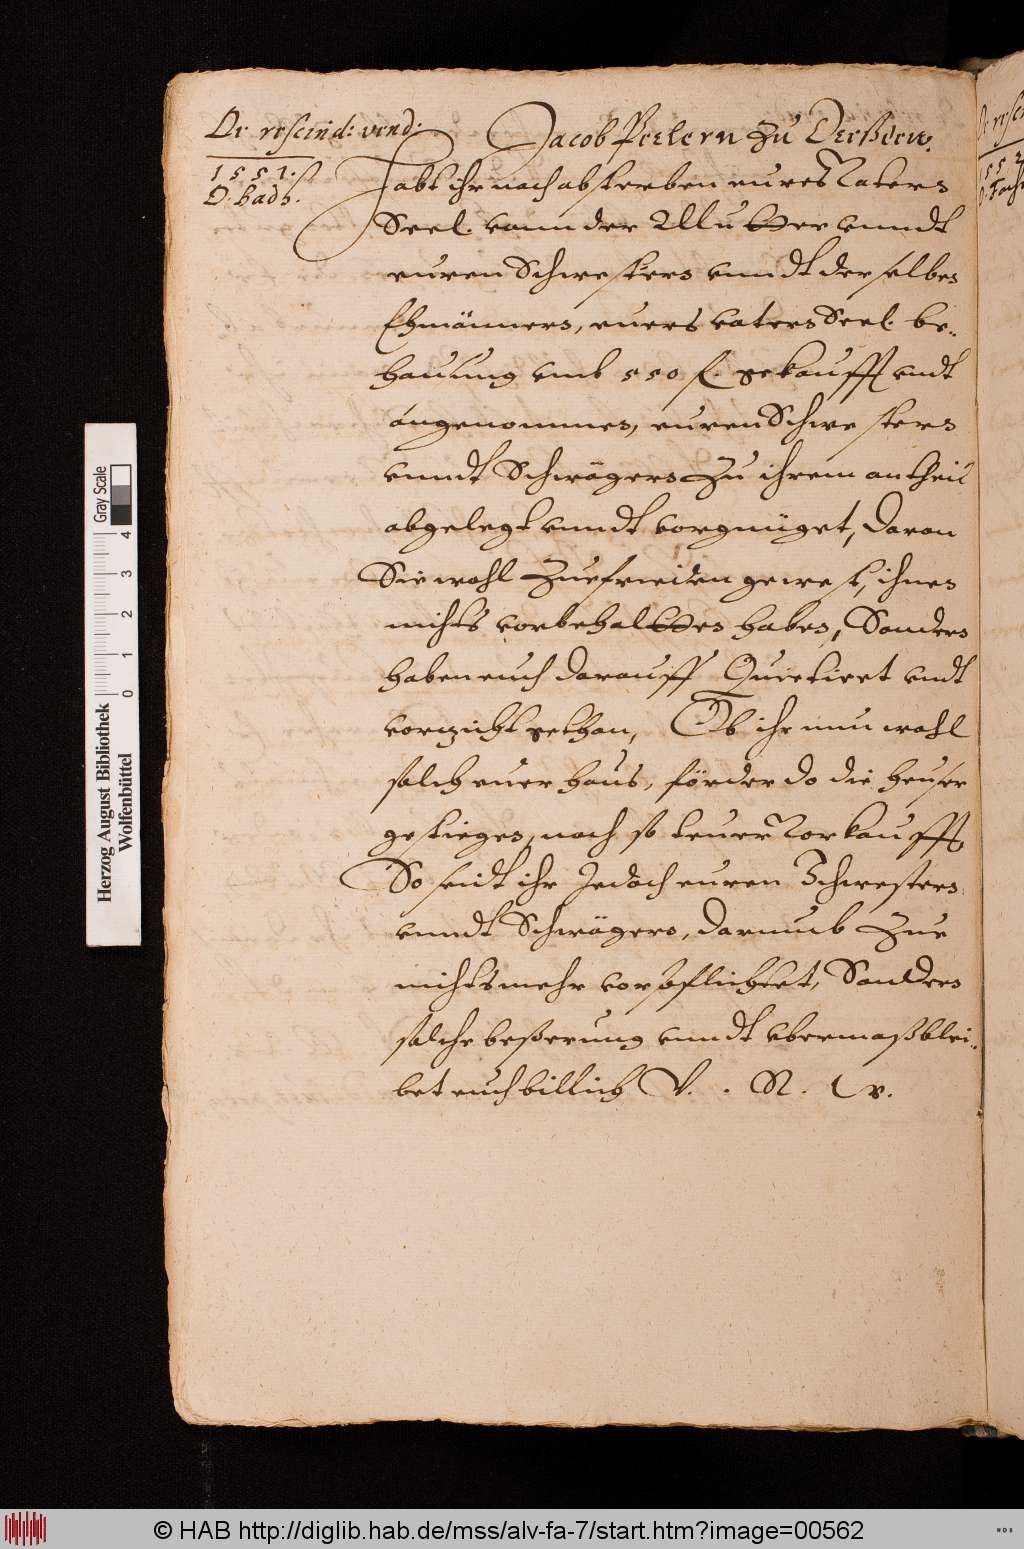 De rescind: vend:
1551.
D: Badh.
Jacob Petern zu Derßow.
Habt ihr nach absterben eures Vaters
Seel. vonn der Mutter vnndt
euren Schwestern vnndt derselben
Ehmännern, euers vaters Seel. be-
hausung vmb 550 f. gekaufft vndt
angenommen, euren Schwestern
vnndt Schwägern zu ihrem antheil
abgelegt vnndt vorgnüget, daran
Sie wohl zuefrieden gewest, ihnen
nichts vorbehalten haben, Sondern
haben euch darauff Quietiret vndt
vorzicht gethan, Ob ihr nun wohl
solch euer haus, förder do die heuser
gestiegen, noch so teuer Vorkaufft,
So seidt ihr Jedoch euren Schwestern
vnndt Schwägern, darumb zue
nichts mehr vorpflichtet, Sondern
solche beßerung vnndt vbermaß blei-
bet euch billich V. R. W.
Herzog August Bibliothek
Wolfenbüttel
0 1 2 3 4
Gray Scale
© HAB http://diglib.hab.de/mss/alv-fa-7/start.htm?image=00562